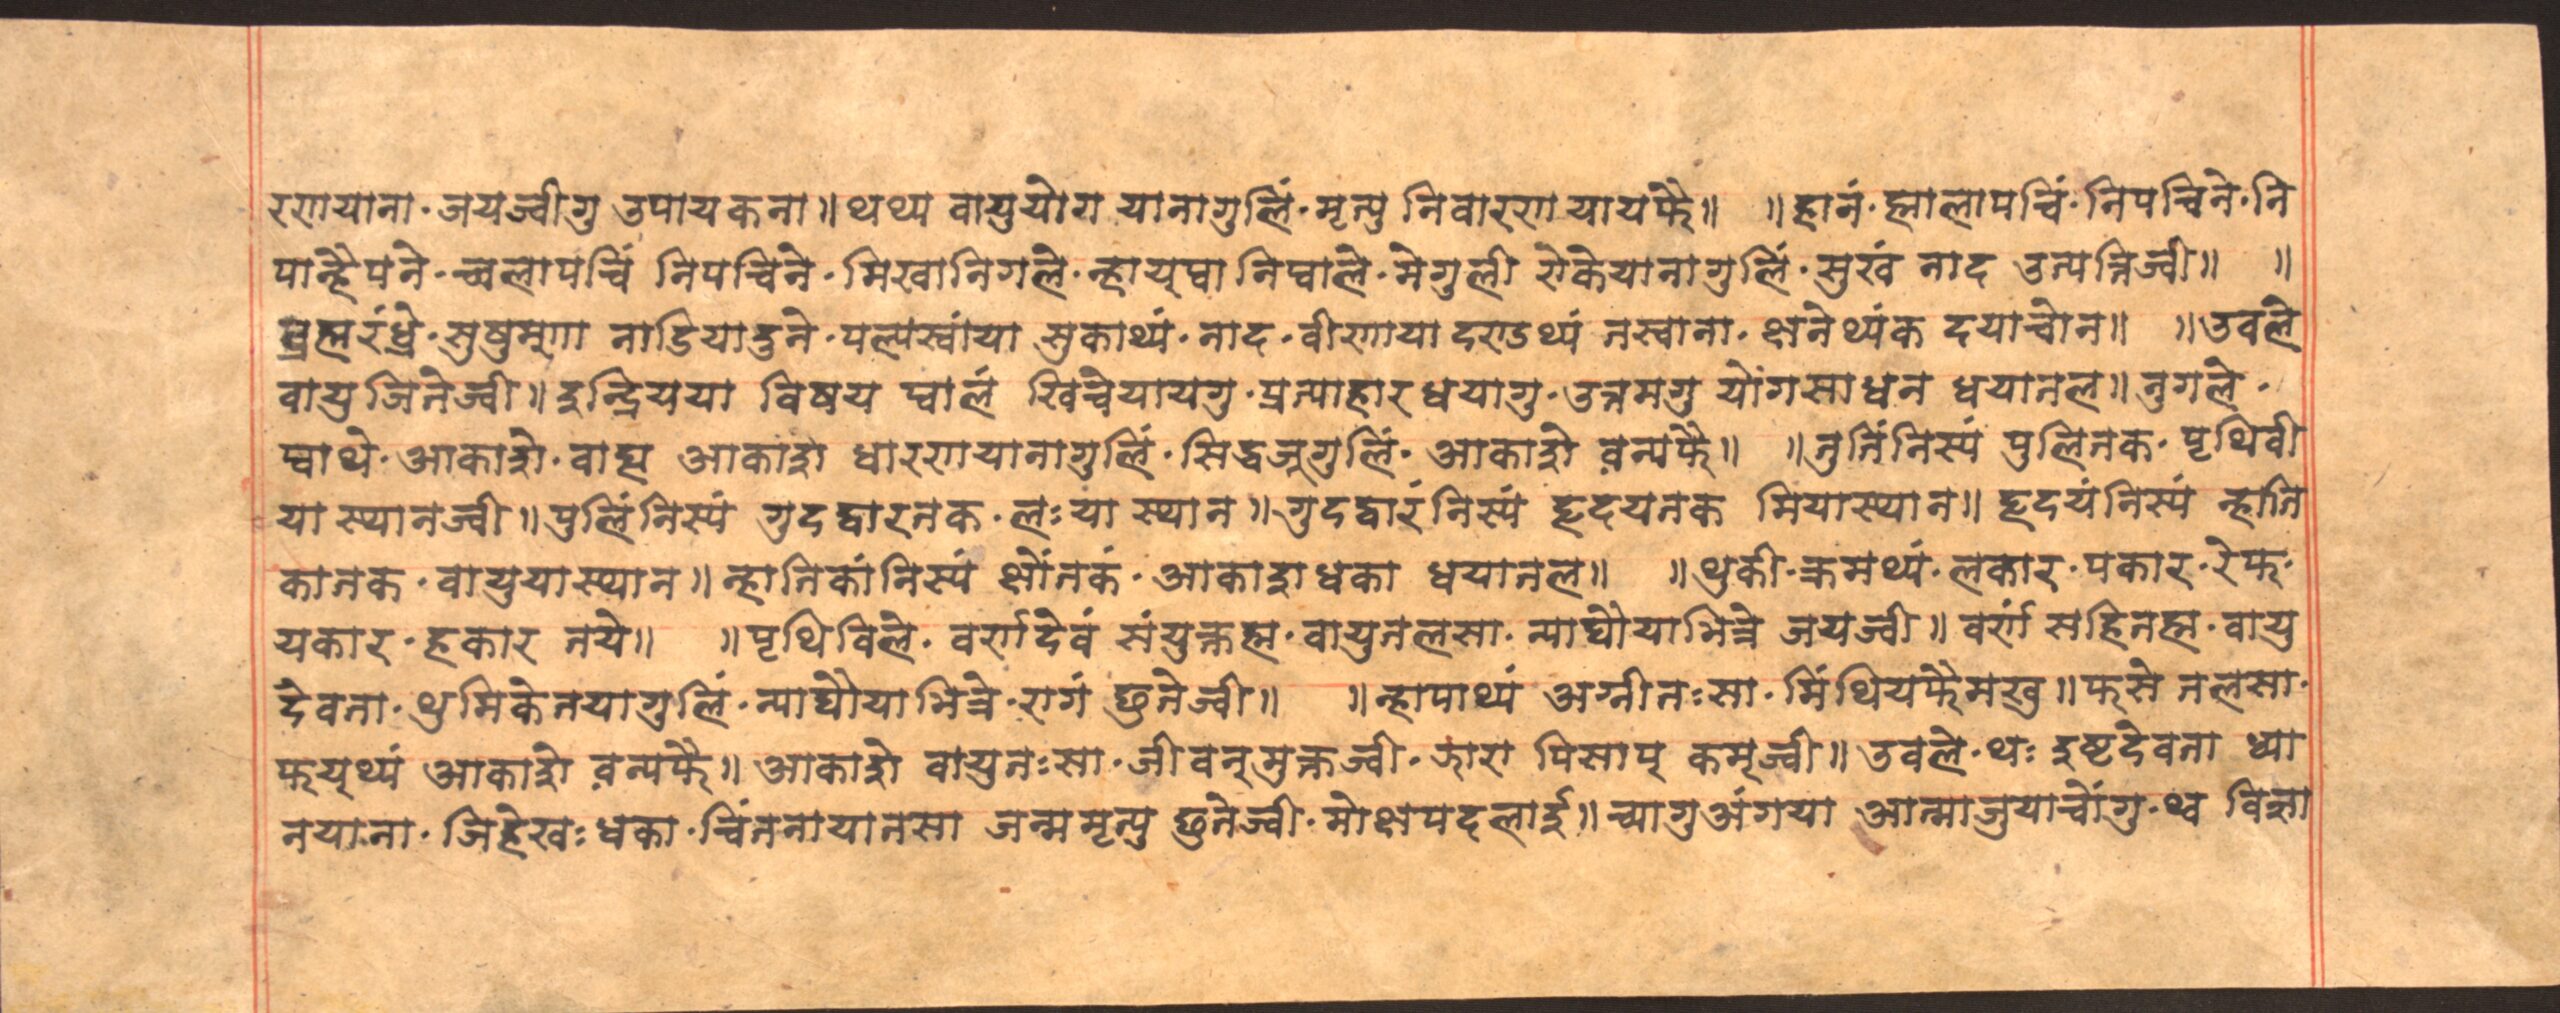 रणयाना · जयज्वीगु उपायकना॥ थथ्य वायुयोग यानागुलिं · मृत्यु निवारण यायफै॥ ॥ह्रानं · ह्नालापचिं · निपचिने · नि
पान्हैपने · च्वलापचिं निपचिने · मिखानिगले · न्हाय्प्वानिप्वाले · मेगुली रोकेयानागुलिं · सुखं नाद उत्पन्निज्वी॥ ॥
ब्रह्मरंध्रे · सुषुम्णा नाडियादुने · पल्यस्वांया सुकाथ्यं · नाद · वीणाया दण्डथ्यं तस्वाना · क्षनेथ्यंक दयाचोन॥ ॥उबले
वायु जितेज्वी॥ इन्द्रियया विषय प्वालं खिच्चेयायगु · प्रत्याहार धयागु · उत्तमगु योंगसाधन धयातल॥ नुगले ·
प्वाथे · आकाशे · वाह्य आकाश धारणयानागुलिं · सिद्धजूगुलिं · आकाशे ब़न्यफै॥ ॥तुतिंनिस्यं पुलितक · पृथिवी
या स्थानज्वी॥ पुलिंनिस्यं गुदद्वारतक · लःया स्थान॥ गुदद्वारंनिस्यं हृदयतक मियास्थान॥ हृदयंनिस्यं न्हाति
कातक · वायुयास्थान॥ न्हातिकांनिस्यं क्षोंतकं · आकाशधका धयातल॥ ॥थुकी · क्रमथ्यं · लकार · पकार · रेफ् ·
यकार · हकार तये॥ ॥पृथिविले · वर्णदेवं संयुक्तह्म · वायुतलसा · न्याघौयाभित्रे जयज्वी॥ वर्णं सहितह्म · वायु
देवता · थुमिकेतयागुलिं · न्याघौयाभित्रे · रागं छुतेज्वी॥ ॥न्हापाथ्यं अग्नीतःसा · मिंथियफैमखु॥ फसे तलसा ·
फय्थ्यं आकाशे ब़न्यफै॥ आकाशे वायुतःसा · जीवन्मुक्तज्वी · झारा पिसाप् कमज्वी॥ उबले · थः इष्टदेवता ध्या
नयाना · जिहेखः धका · चिंतनायातसा जन्ममृत्यु छुतेज्वी · मोक्षपदलाई॥ च्यागुअंगया आत्माजुयाचोंगु · थ्व विना